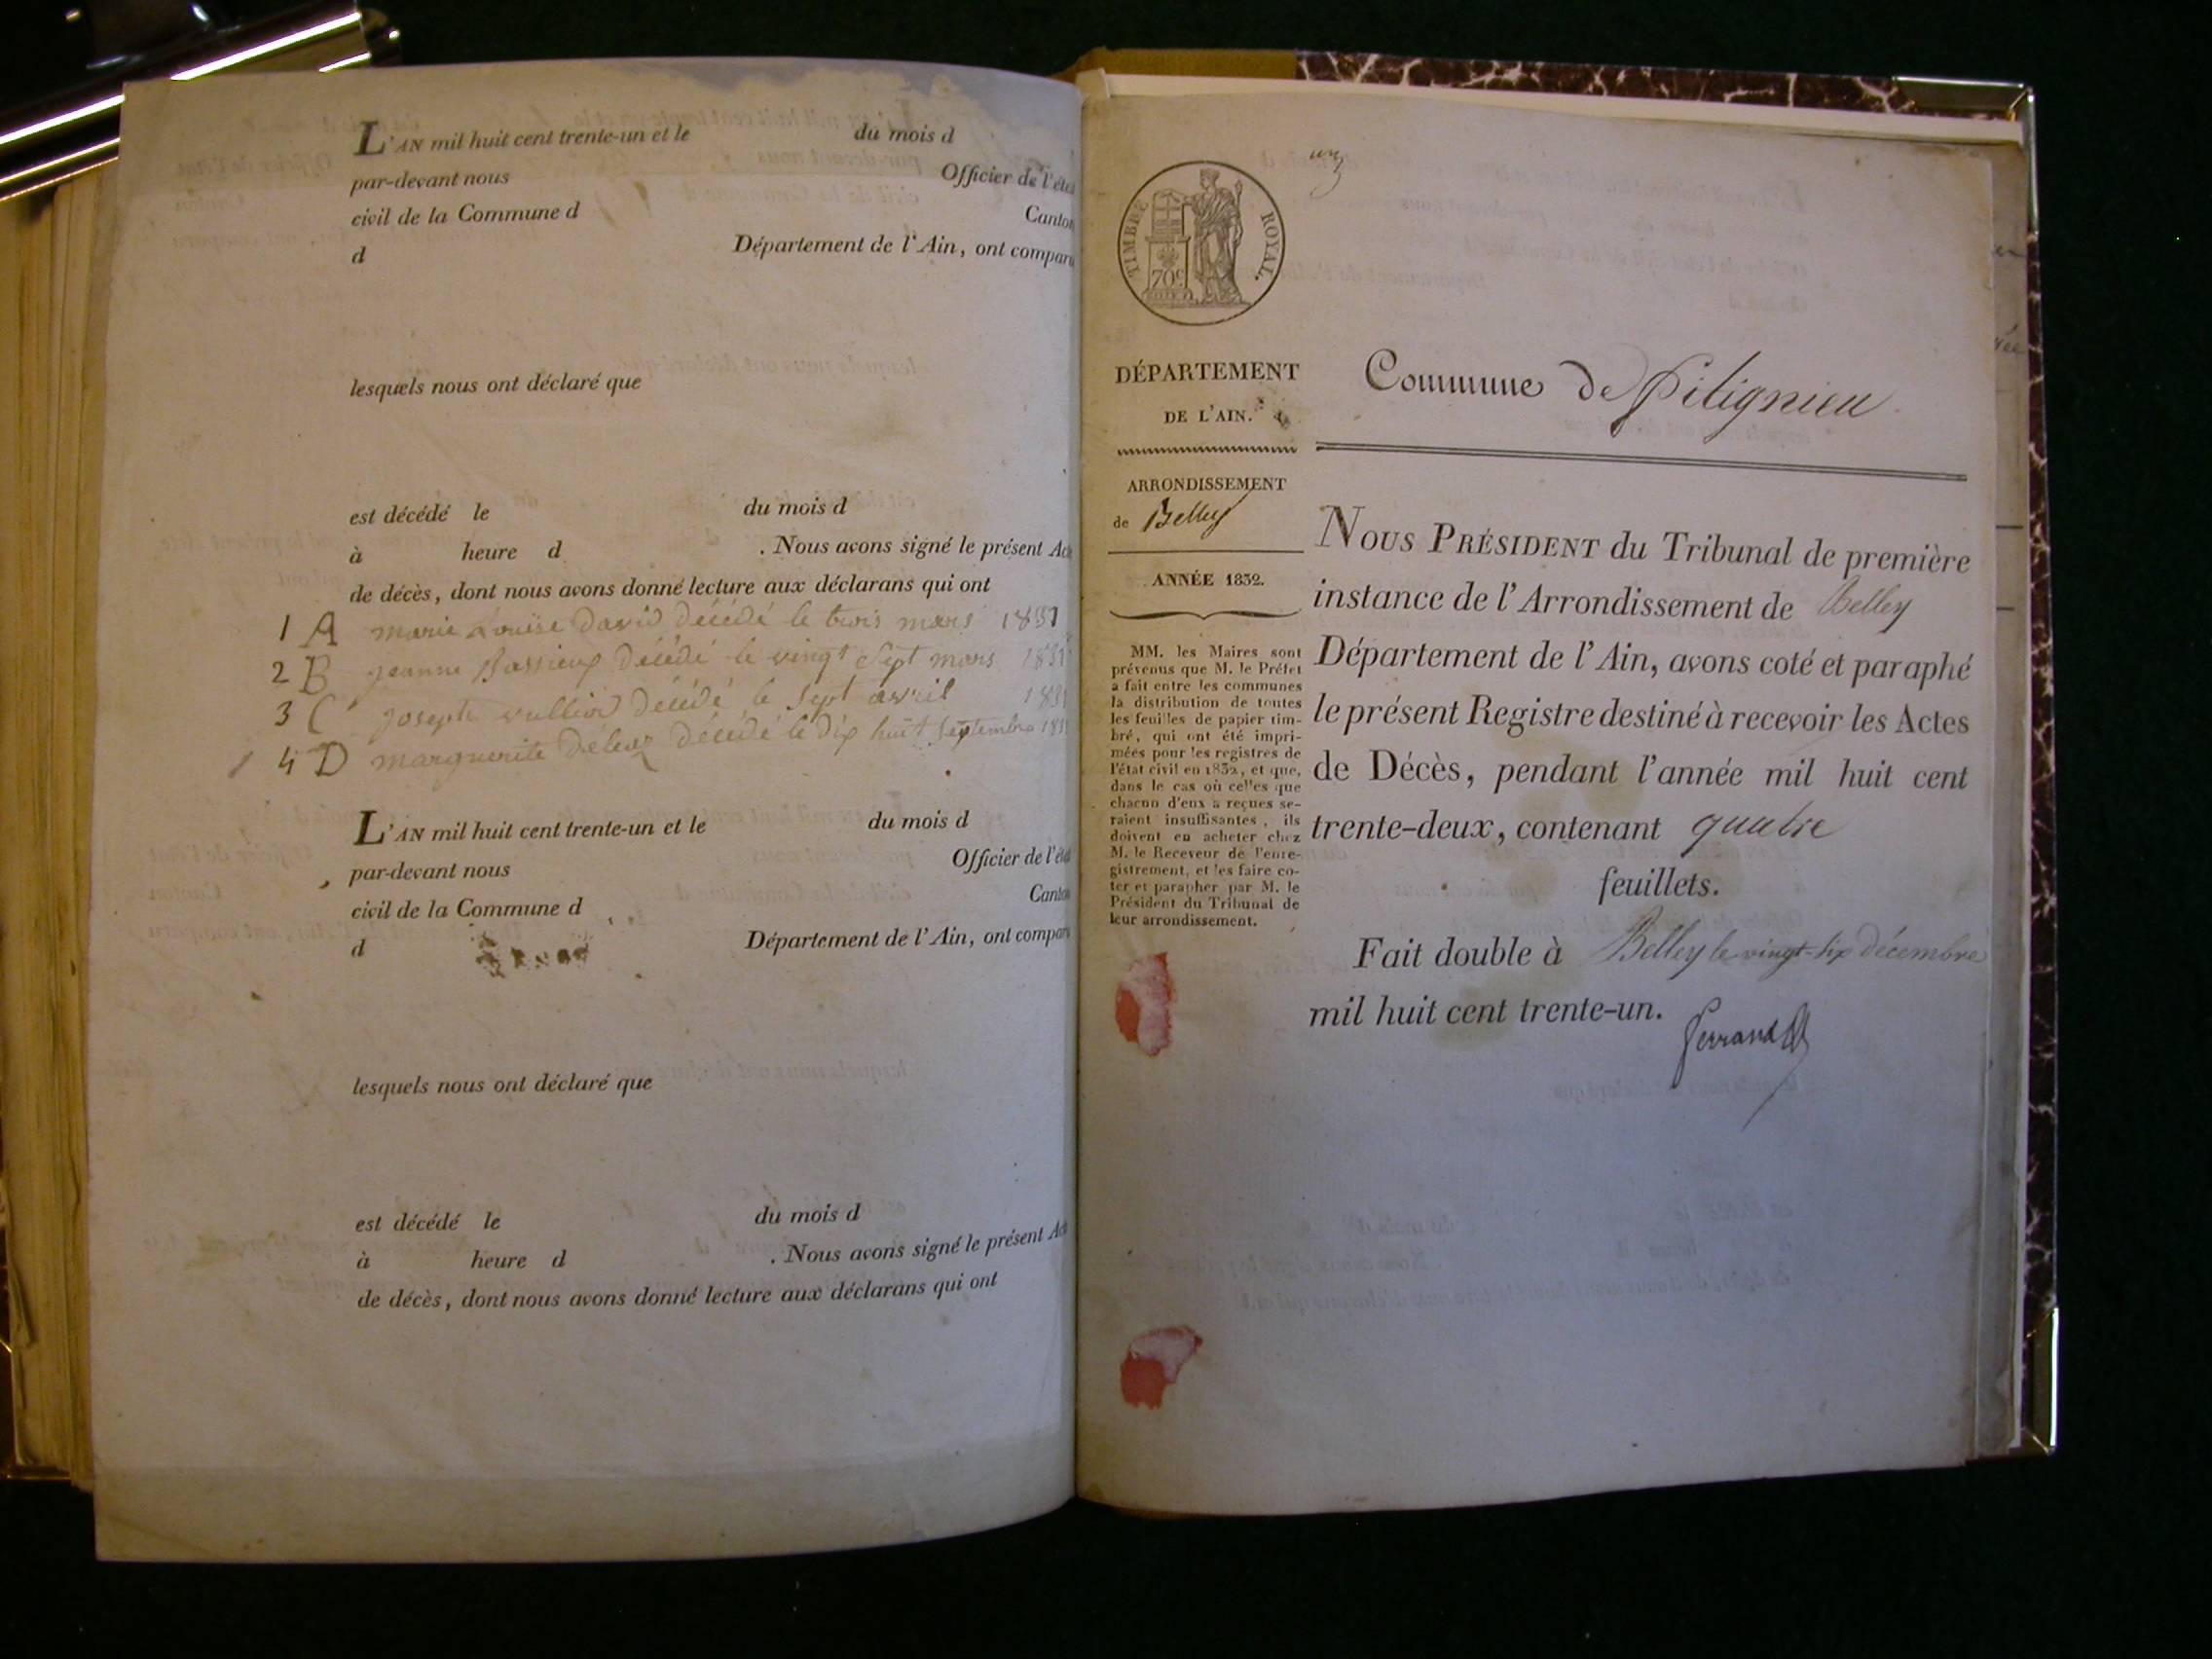 L'AN mil huit cent trente-un et le du mois d
par-devant nous Officier de l'état
civil de la Commune d Canton
d Département de l'Ain, ont comparu
lesquels nous ont déclaré que
est décédé le du mois d
à heure d . Nous avons signé le présent Acte
de décès, dont nous avons donné lecture aux déclarans qui ont
1 A marie Louise david décédé le trois mars 1831
2 B jeanne décédé le vingt sept mars 1831
3 C joseph décédé le sept avril 1831
4 D marguerite décédé le dix huit septembre 1831
L'AN mil huit cent trente-un et le du mois d
par-devant nous Officier de l'état
civil de la Commune d Canton
d Département de l'Ain, ont comparu
lesquels nous ont déclaré que
est décédé le du mois d
à heure d . Nous avons signé le présent Acte
de décès, dont nous avons donné lecture aux déclarans qui ont
un
TIMBRE ROYAL.
70c
DÉPARTEMENT
DE L'AIN.
ARRONDISSEMENT
de Belley
ANNÉE 1832.
MM. les Maires sont
prévenus que M. le Préfet
a fait entre les communes
la distribution de toutes
les feuilles de papier tim-
bré, qui ont été impri-
mées pour les registres de
l'état civil en 1832, et que,
dans le cas où celles que
chacun d'eux a reçues se-
raient insuffisantes, ils
doivent en acheter chez
M. le Receveur de l'enre-
gistrement, et les faire co-
ter et parapher par M. le
Président du Tribunal de
leur arrondissement.
Commune de Pitignieu
NOUS PRÉSIDENT du Tribunal de première
instance de l'Arrondissement de Belley
Département de l'Ain, avons coté et paraphé
le présent Registre destiné à recevoir les Actes
de Décès, pendant l'année mil huit cent
trente-deux, contenant quatre
feuillets.
Fait double à Belley le vingt-six décembre
mil huit cent trente-un.
Ferrand